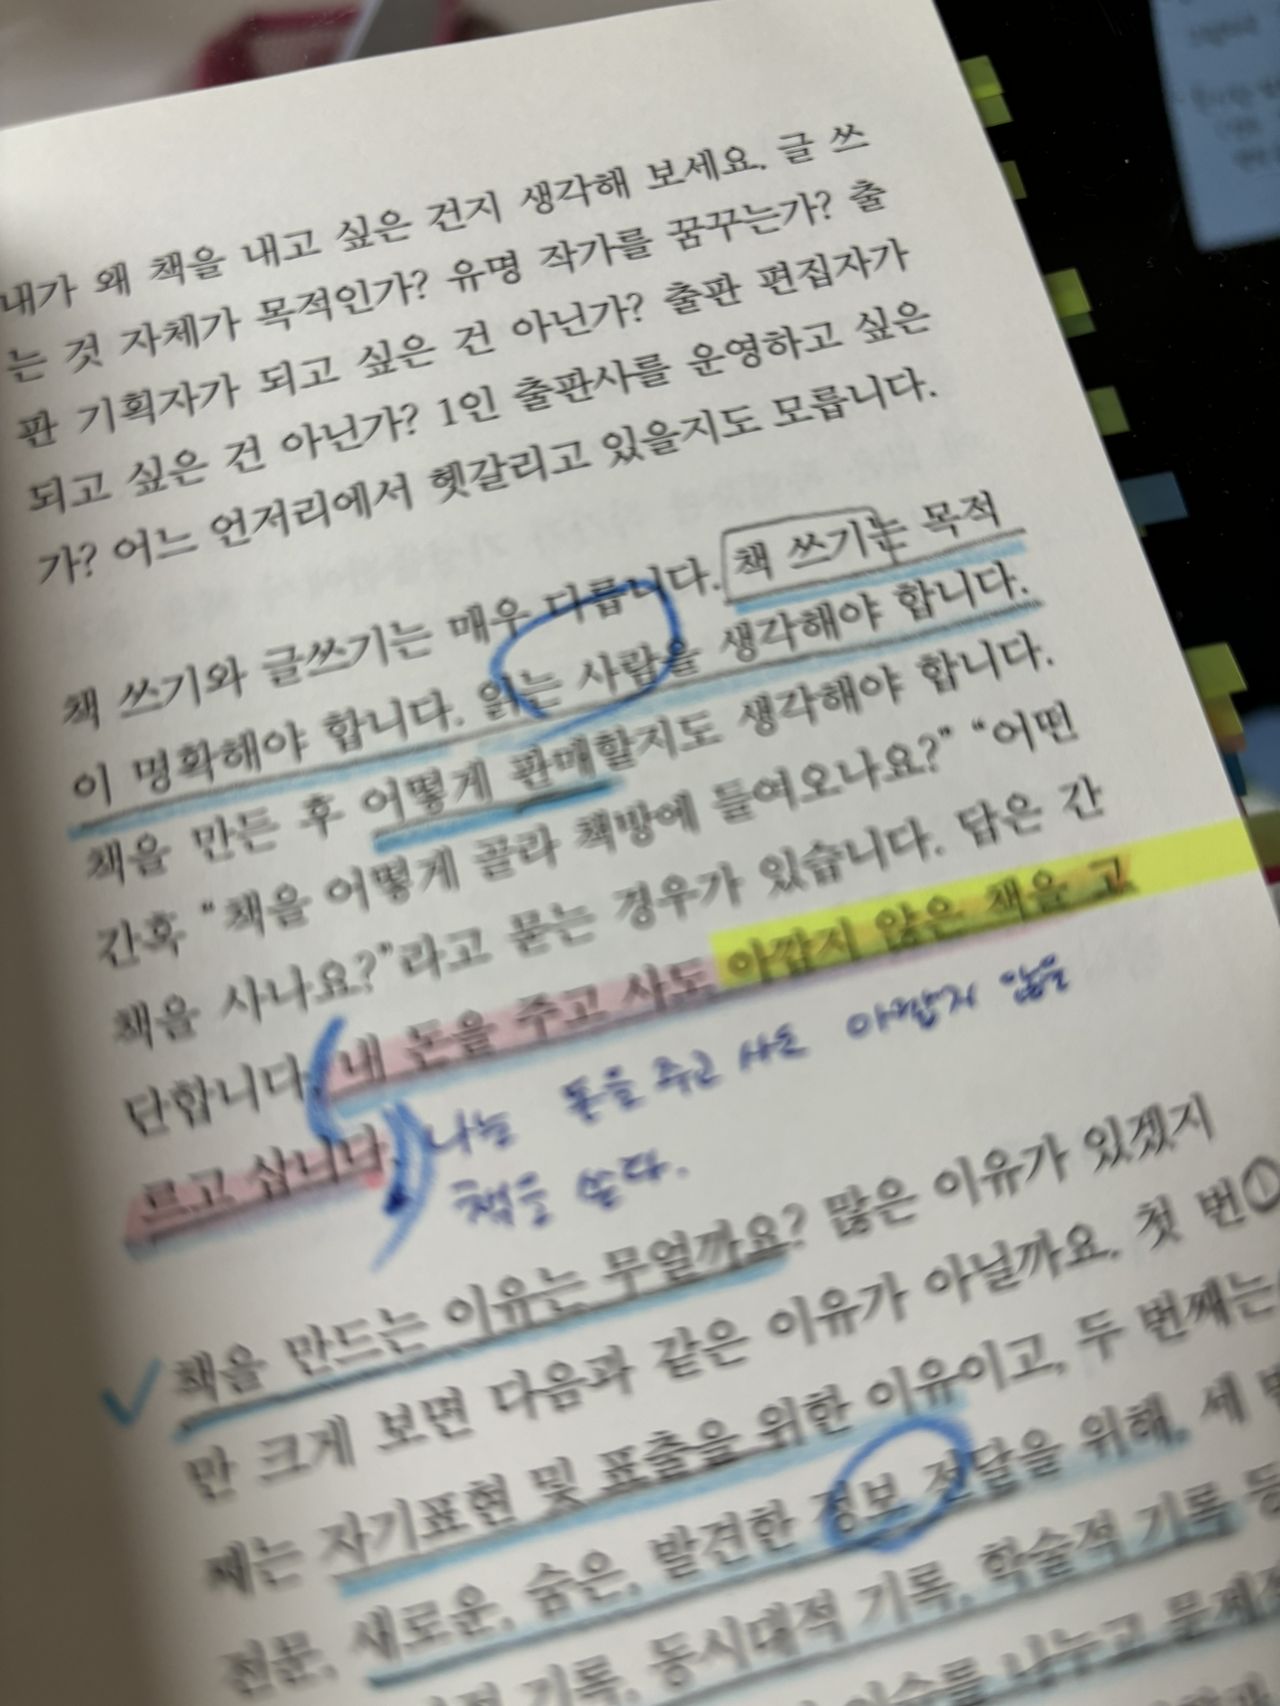 내가 왜 책을 내고 싶은 건지 생각해 보세요. 글 쓰
는 것 자체가 목적인가? 유명 작가를 꿈꾸는가? 출
판 기획자가 되고 싶은 건 아닌가? 출판 편집자가
되고 싶은 건 아닌가? 1인 출판사를 운영하고 싶은
가? 어느 언저리에서 헷갈리고 있을지도 모릅니다.
책 쓰기와 글쓰기는 매우 다릅니다. 책 쓰기는 목적
이 명확해야 합니다. 읽는 사람을 생각해야 합니다.
책을 만든 후 어떻게 판매할지도 생각해야 합니다.
간혹 “책을 어떻게 골라 책방에 들여오나요?” “어떤
책을 사나요?”라고 묻는 경우가 있습니다. 답은 간
단합니다. 내 돈을 주고 사도 아깝지 않은 책을 고
르고 삽니다.
나는 돈을 주고 사도 아깝지 않을
책을 쓴다.
책을 만드는 이유는 무얼까요? 많은 이유가 있겠지
만 크게 보면 다음과 같은 이유가 아닐까요. 첫 번①
째는 자기표현 및 표출을 위한 이유이고, 두 번째는
전문, 새로운, 숨은, 발견한 정보 전달을 위해, 세
기록, 동시대적 기록, 학술적 기록 등
나누고